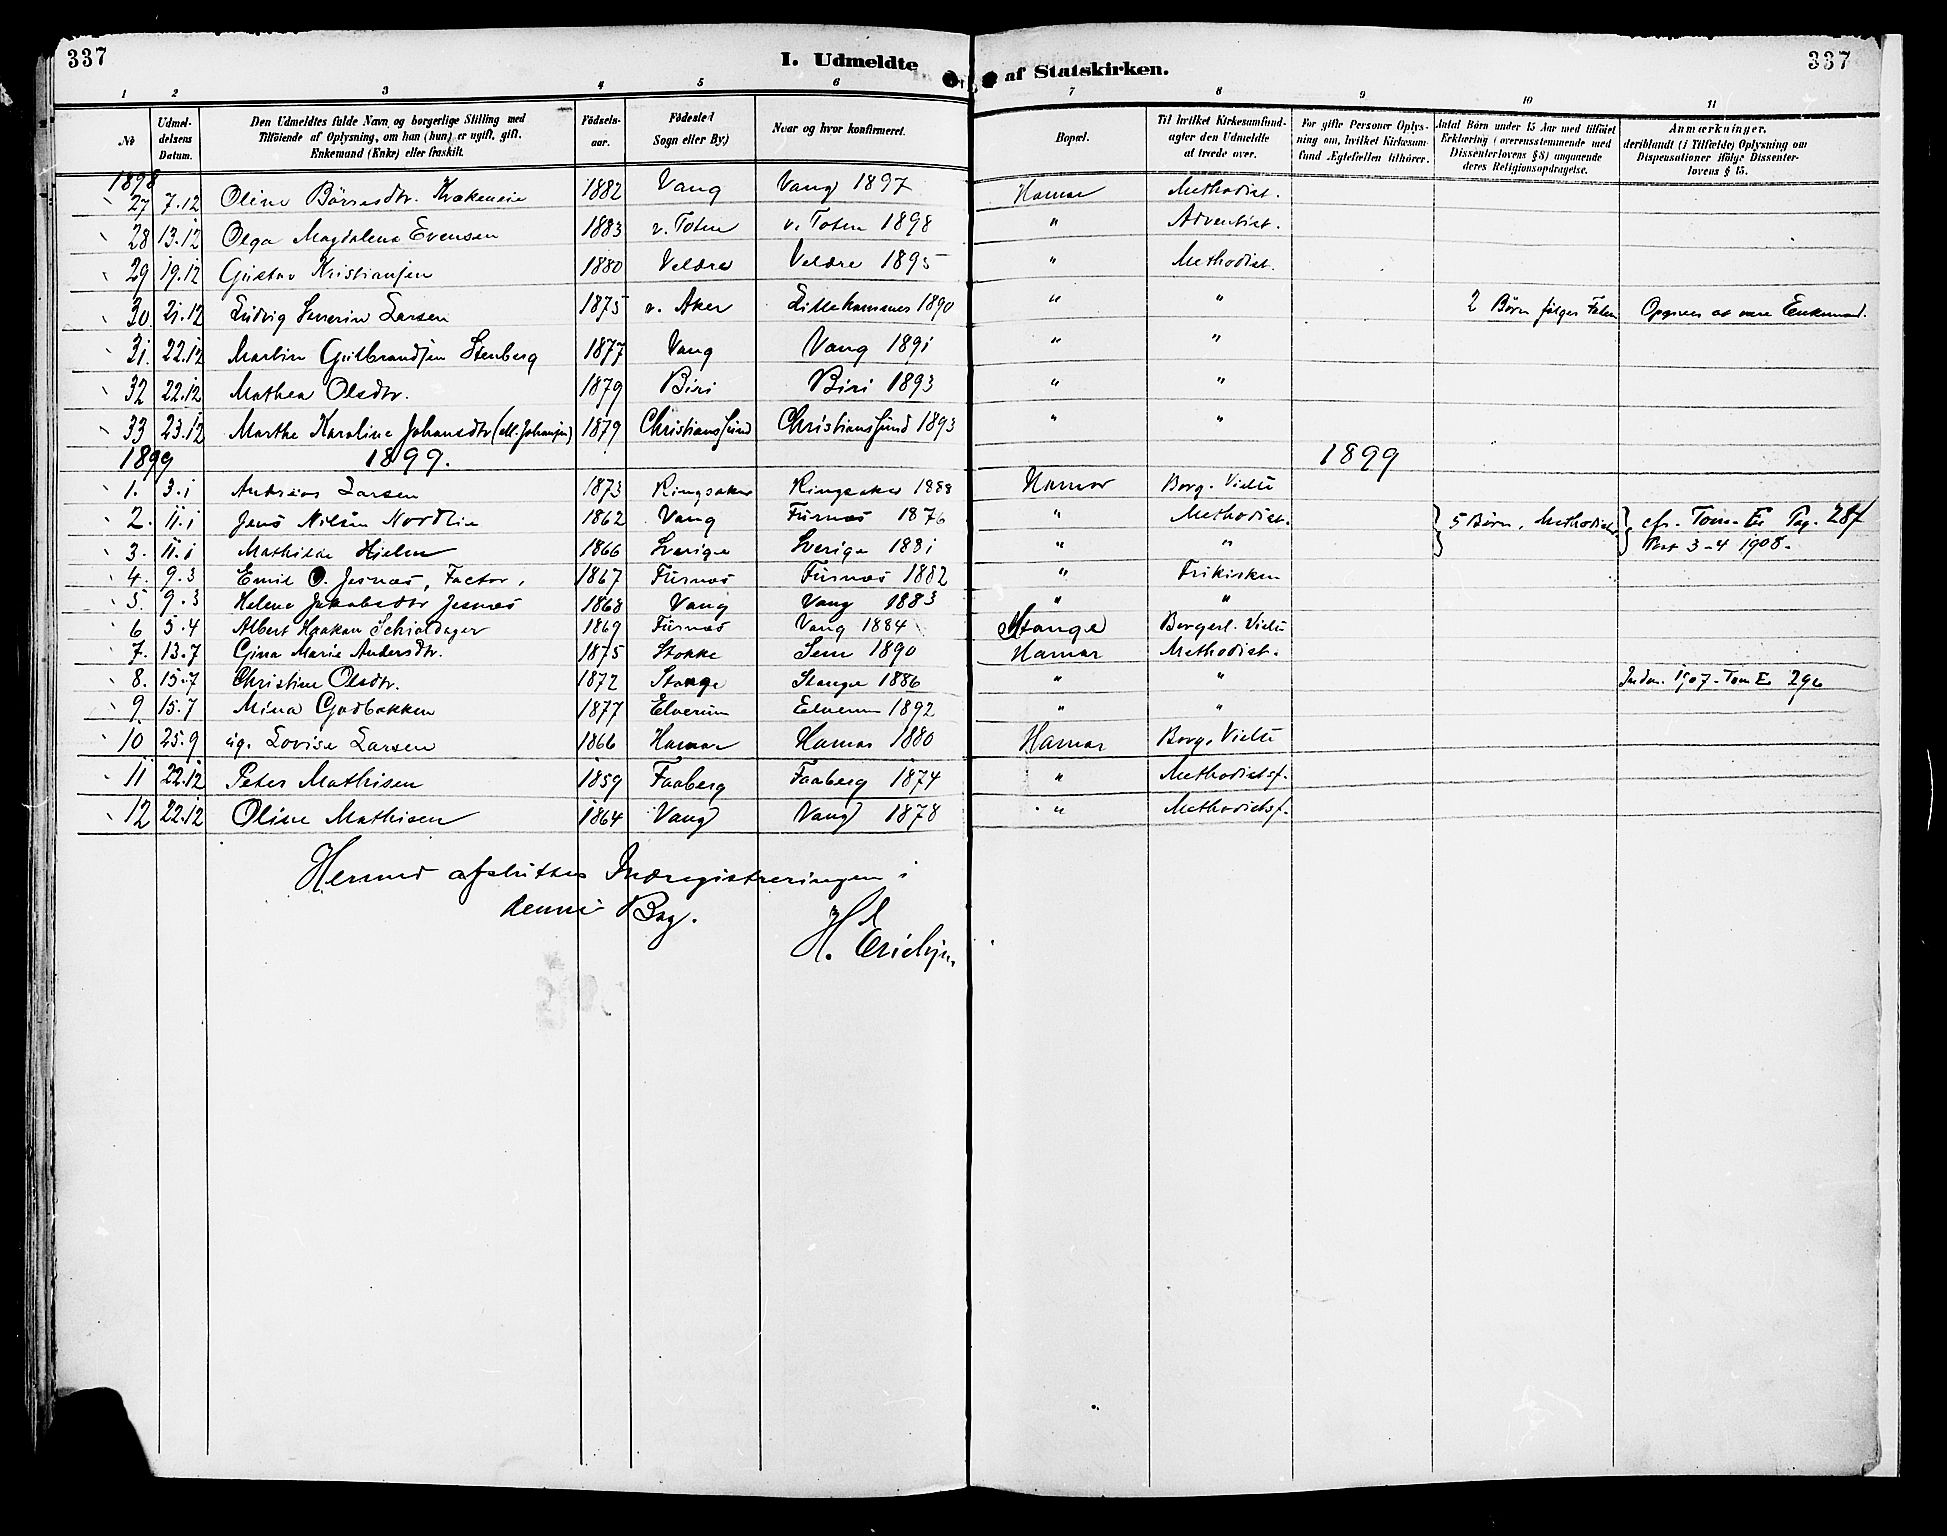 337
I. Udmeldte af Statskirken.
337
1 2 3 4 5 6 7 8 9 10 11
No
Udmeldelsens Datum.
Den Udmeldtes fulde Navn og borgerlige Stilling med Tilføiende af Oplysning, om han (hun) er ugift, gift, Enkemand (Enke) eller fraskilt.
Fødselsaar.
Fødested Sogn eller By.)
Naar og hvor konfirmeret.
Bopæl.
Til hvilket Kirkesamfund agter den Udmeldte at træde over.
For gifte Personer Oplysning om, hvilket Kirkesamfund Ægtefællen tilhører.
Antal Børn under 15 Aar med tilføiet Erklæring (overensstemmende med Dissenterlovens § 8) angaaende deres Religionsopdragelse.
Anmærkninger, deriblandt (i Tilfælde) Oplysning om Dispensationer ifølge Dissenterlovens § 15.
1898
27 7.12 Oline Børresdtr. 1882 Vang Vang 1897 Hamar Methodist.
28 13.12 Olga Magdalena Evensen 1883 v. Toten v. Toten 1898 " Adventist.
29 19.12 Gustav Kristiansen 1880 Veldre Veldre 1895 " Methodist.
30. 21.12 Ludvig Severin Larsen 1875 v. Aker Lillehammer 1890 " " 2 Børn følger Faderen Opgives at være Enkemand.
31. 22.12 Martin Gulbrandsen Stenberg 1877 Vang Vang 1891 " "
32 22.12 Mathea Olsdtr. 1879 Biri Biri 1893 " "
33 23.12 Marthe Karoline Johansdtr (ell. Johansen) 1879 Christianssund Christianssund 1893 " "
1899 1899. 1899
1. 3.1 Andreas Larsen 1873 Ringsaker Ringsaker 1888 Hamar Borg. Vielse
2. 11.1 Jens Nilsen Nordlie 1862 Vang Furnes 1876 " Methodist. 5 Børn, Methodister cfr. Tom. E Pag. 287
3. 11.1 Mathilde Hjelm 1866 Sverige Sverige 1881 " " Post 3-4 1908.
4. 9.3 Emil O. Jesnæs, Factor, 1867 Furnæs Furnæs 1882 " Frikirken
5. 9.3 Helene Jakobsdtr Jesnæs 1868 Vang Vang 1883 " "
6 5.4 Albert Haakon Schioldager 1869 Furnæs Vang 1884 Stange Borgerl. Vielse
7. 13.7 Gina Marie Andersdtr. 1875 Stokke Sem 1890 Hamar Methodist.
8. 15.7 Christine Olsdtr. 1872 Stange Stange 1886 " " 1907. Tom E 296
9. 15.7 Mina Godbakken 1877 Elverum Elverum 1892 " "
10 25.9 Lovise Larsen 1866 Hamar Hamar 1880 Hamar Borg. Vielse
11 22.12 Peter Mathisen 1859 Faaberg Faaberg 1874 " Methodistsf.
12 22.12 Oline Mathisen 1864 Vang Vang 1878 " Methodistsf.
Hermed afsluttes Indregistreringen i
denne Bog.
H. Erichsen